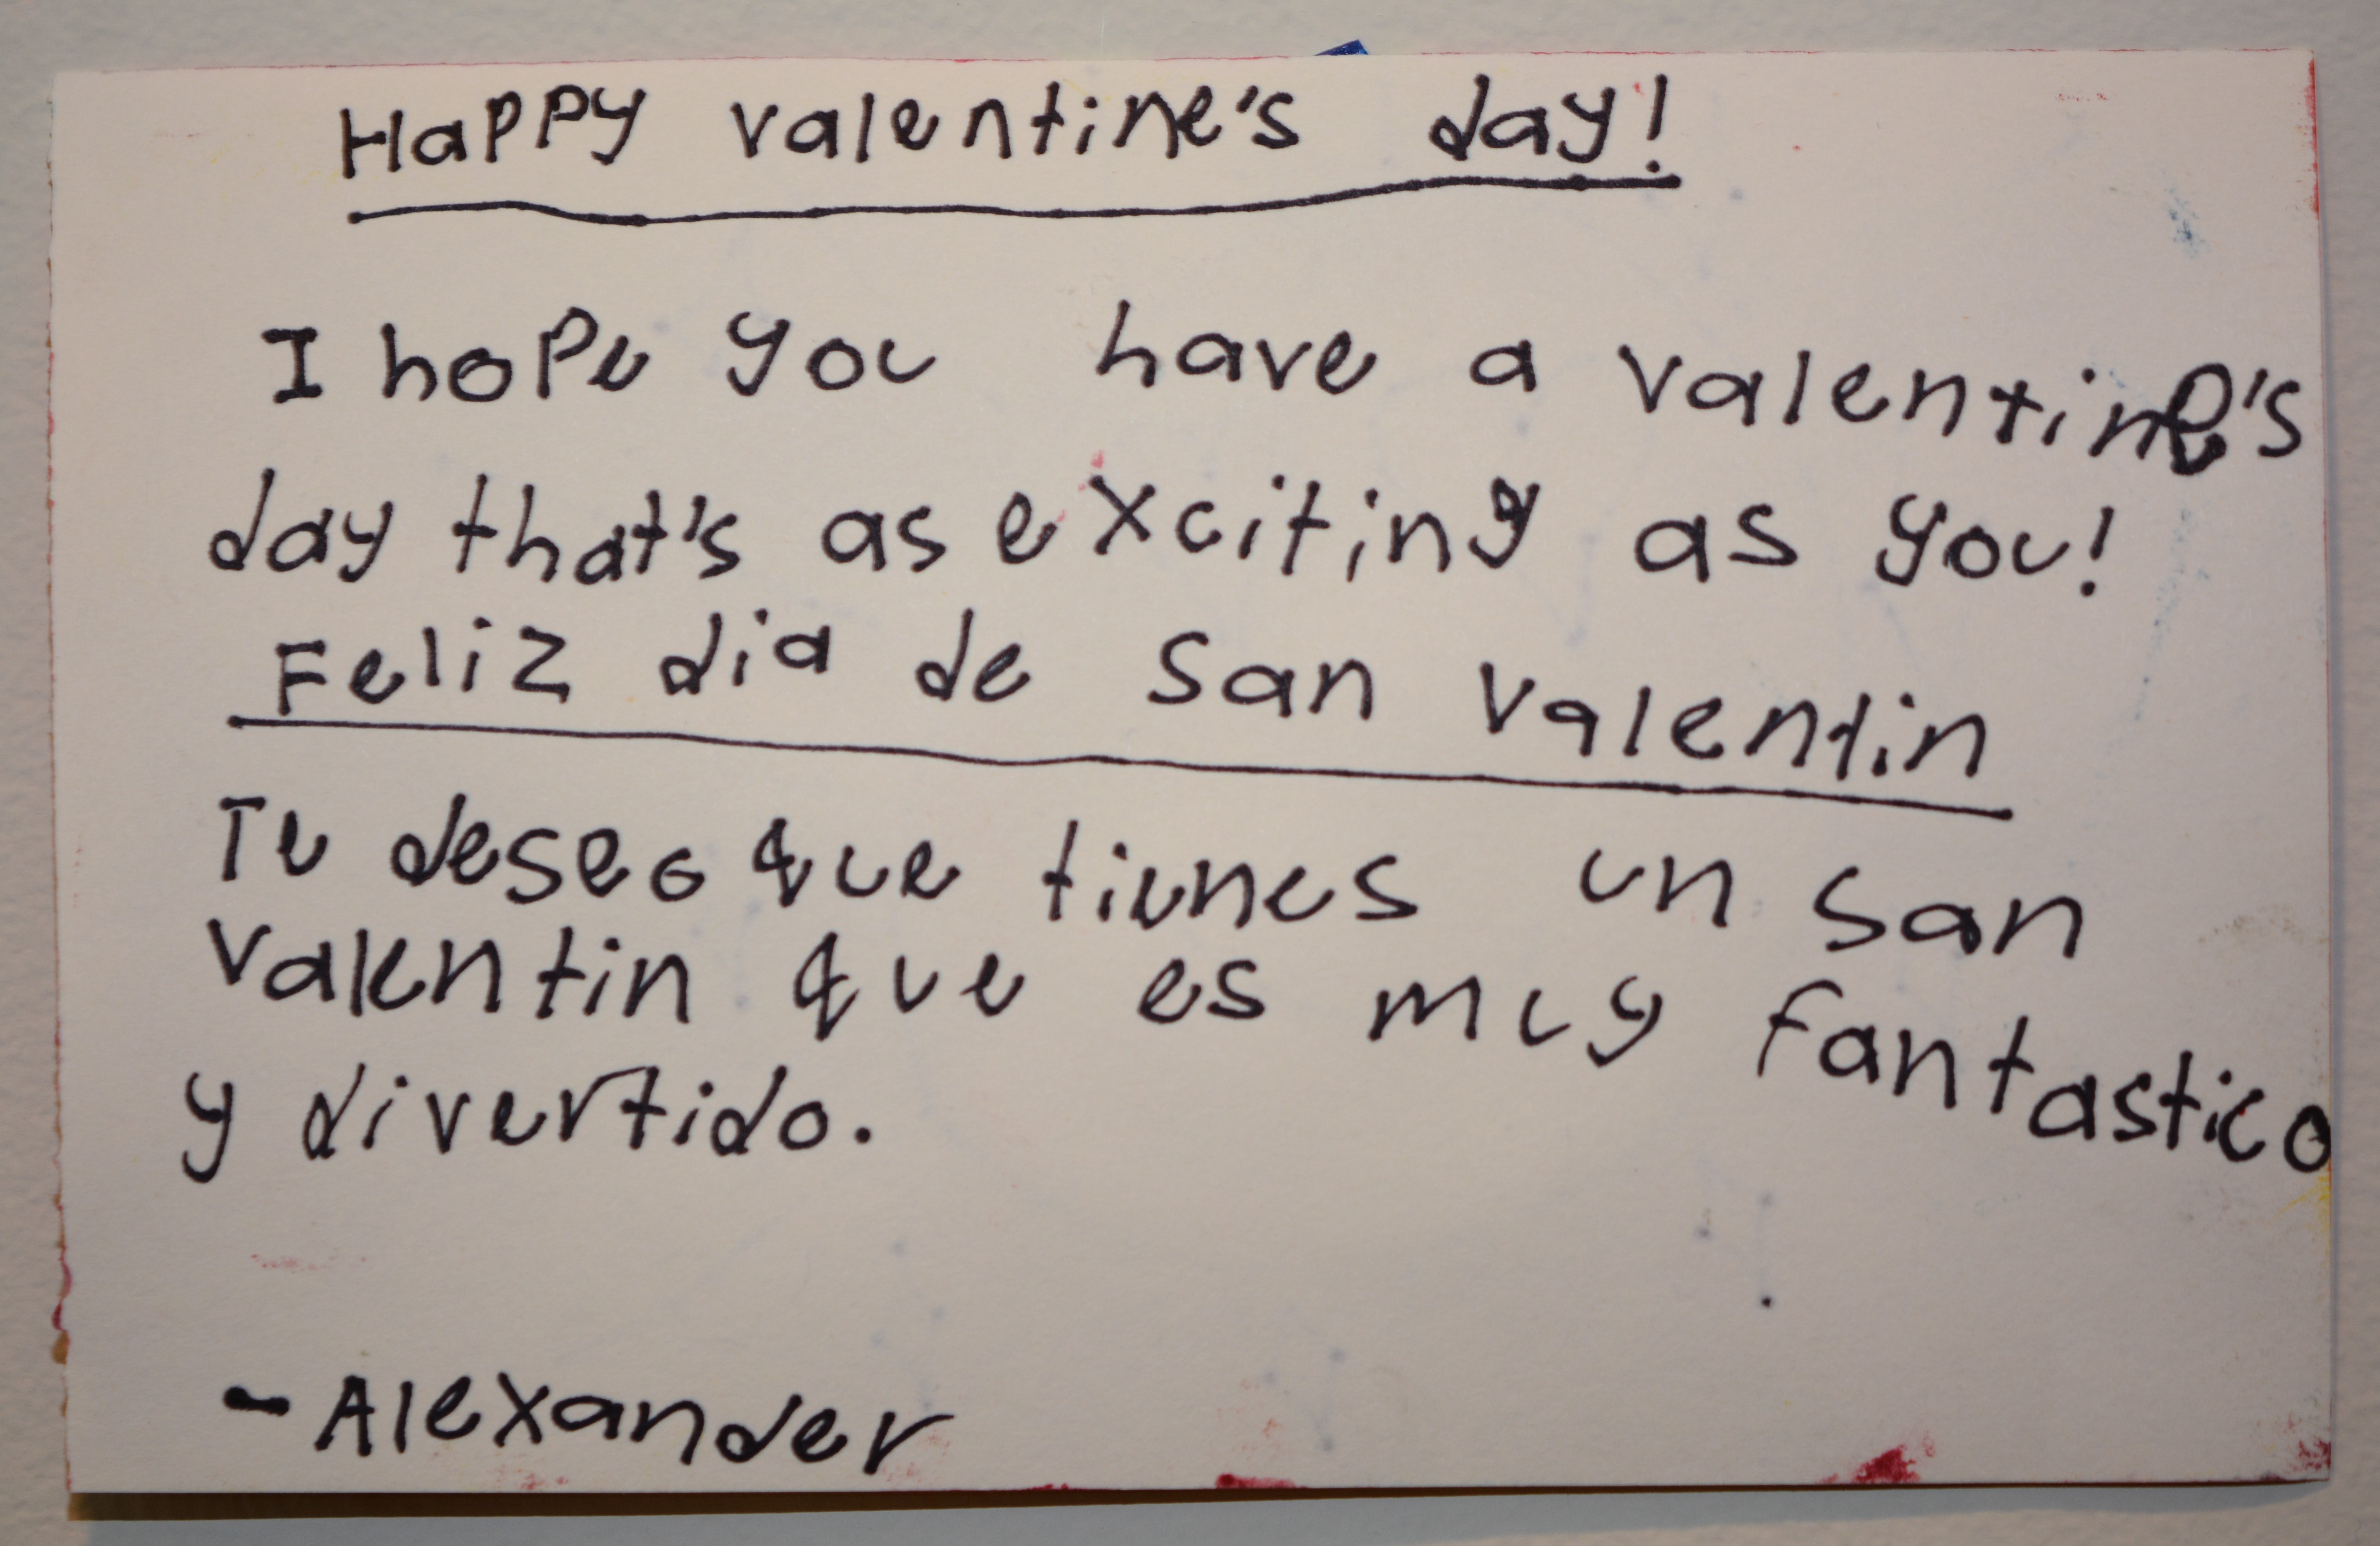 Happy valentine's day!
I hope you have a valentine's
day that's as exciting as you!
Feliz dia de san valentin
Te deseo que tienes un san
valentin que es muy fantastico
y divertido.
-Alexander